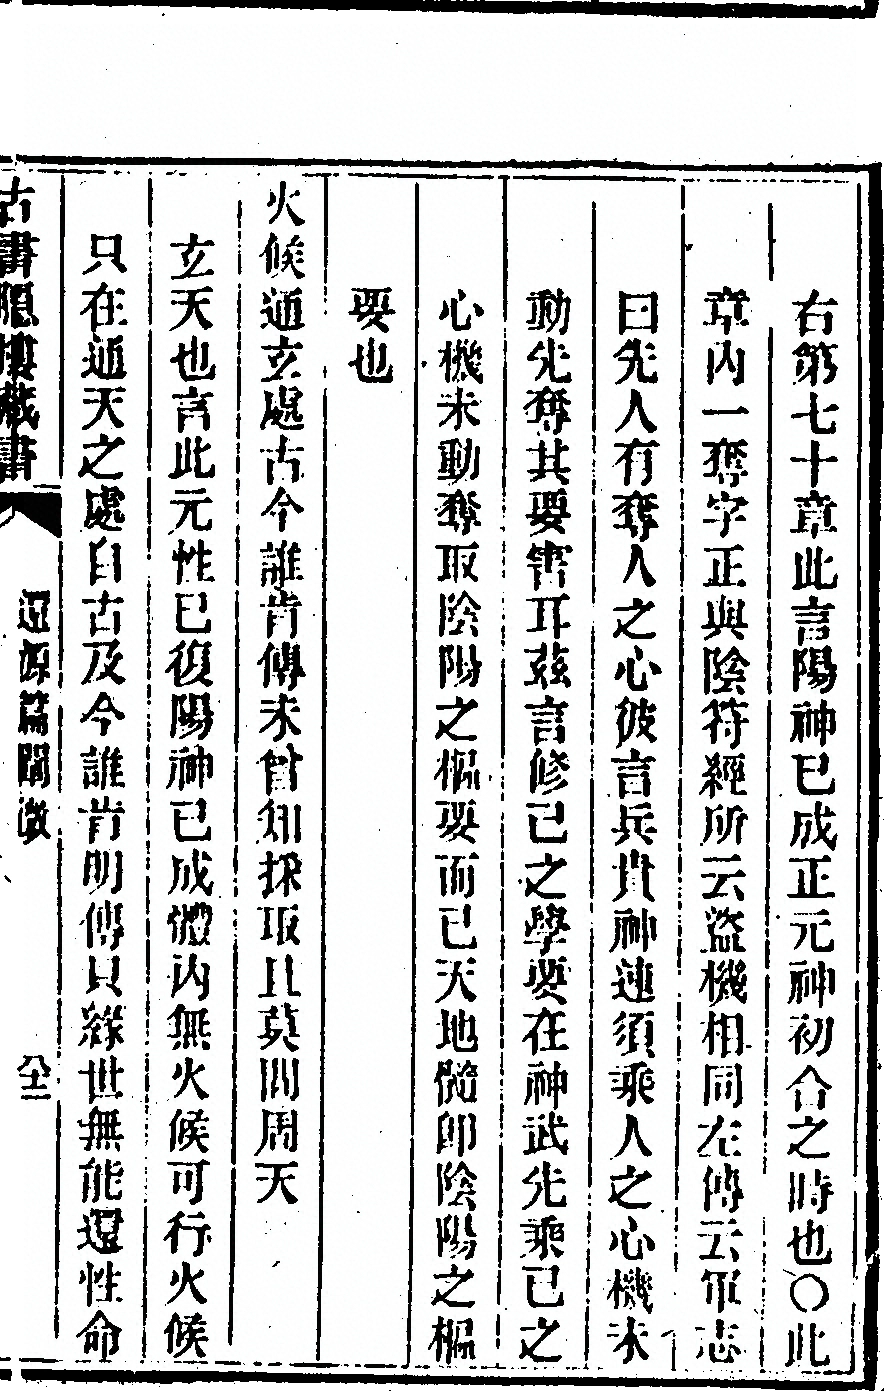 右第七十章此言陽神已成正元神初合之時也〇此
章內一奪字正與陰符經所云盜機相同左傳云軍志
曰先人有奪人之心彼言兵貴神速須乘人之心機未
動先奪其要害耳茲言修己之學要在神武先乘己之
心機未動奪取陰陽之樞要而已天地髓即陰陽之樞
要也
火候通玄處古今誰肯傳未曾知採取且莫問周天
玄天也言此元性已復陽神已成體內無火候可行火候
只在通天之處自古及今誰肯明傳只緣世無能還性命
古書隱樓藏書
還源篇闡微
六十二